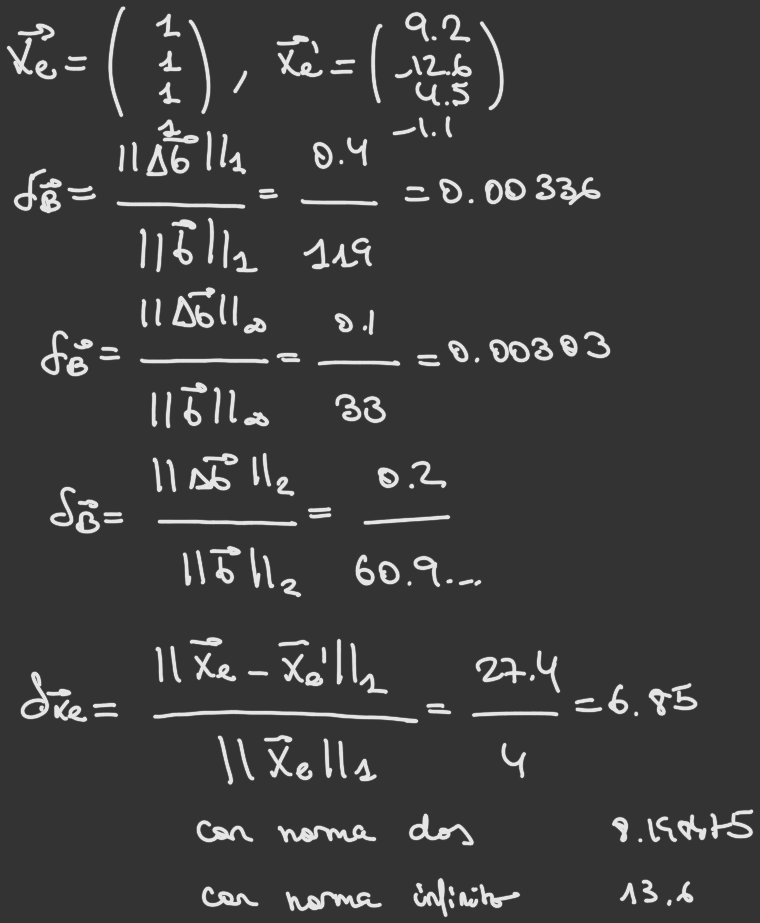 x⃗e = ( 1 1 1 1 ), x⃗e' = ( 9.2 -12.6 4.5 -1.1 )
δB⃗ = ||Δb⃗||1 / ||b⃗||1 = 0.4 / 119 = 0.00336
δB⃗ = ||Δb⃗||∞ / ||b⃗||∞ = 0.1 / 33 = 0.00303
δB⃗ = ||Δb⃗||2 / ||b⃗||2 = 0.2 / 60.9...
δx⃗e = ||x⃗e - x⃗e'||1 / ||x⃗e||1 = 27.4 / 4 = 6.85
con norma dos
con norma infinito 13.6